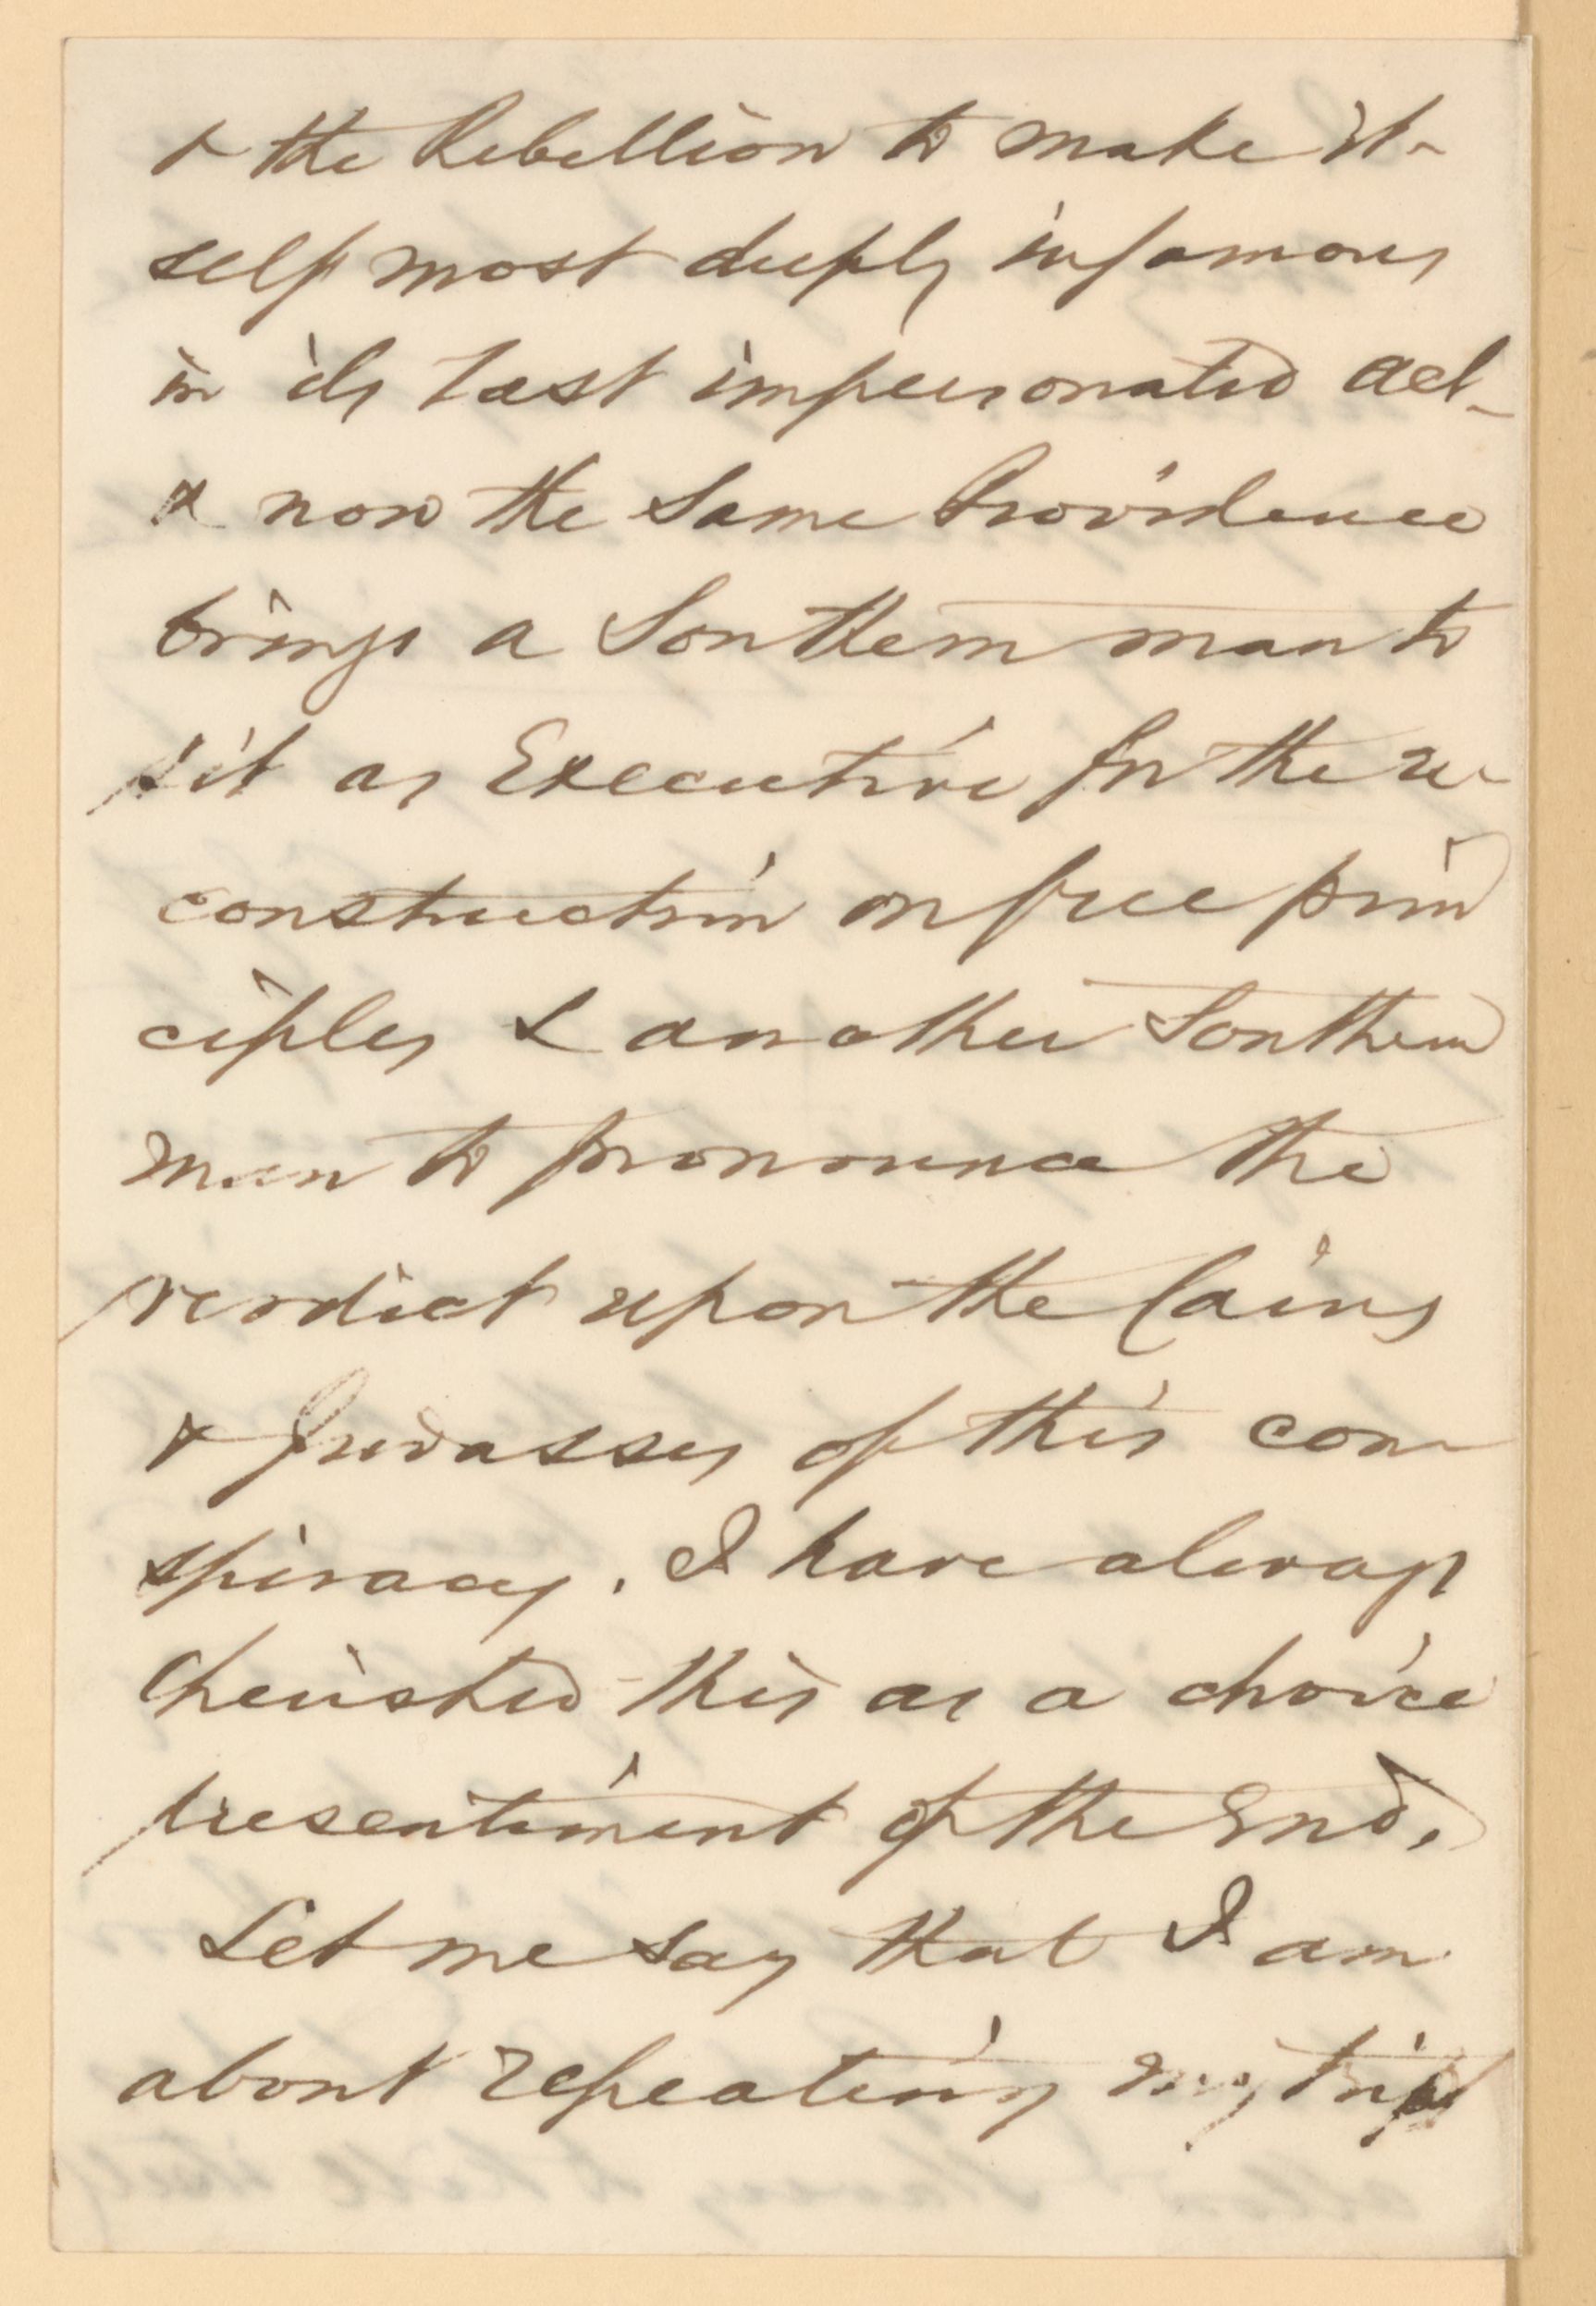 & the Rebellion to make it-
self most deeply infamous
in its last impersonated act-
& now the same Providence
brings a Southern man to
sit as Executive for the re-
construction on free prin
ciples & another Southern
man to pronounce the
verdict upon the Cains
& Judasses of this con-
spiracy. I have always
cherished this as a choice
presentiment of the End.
Let me say that I am
about repeating my trip